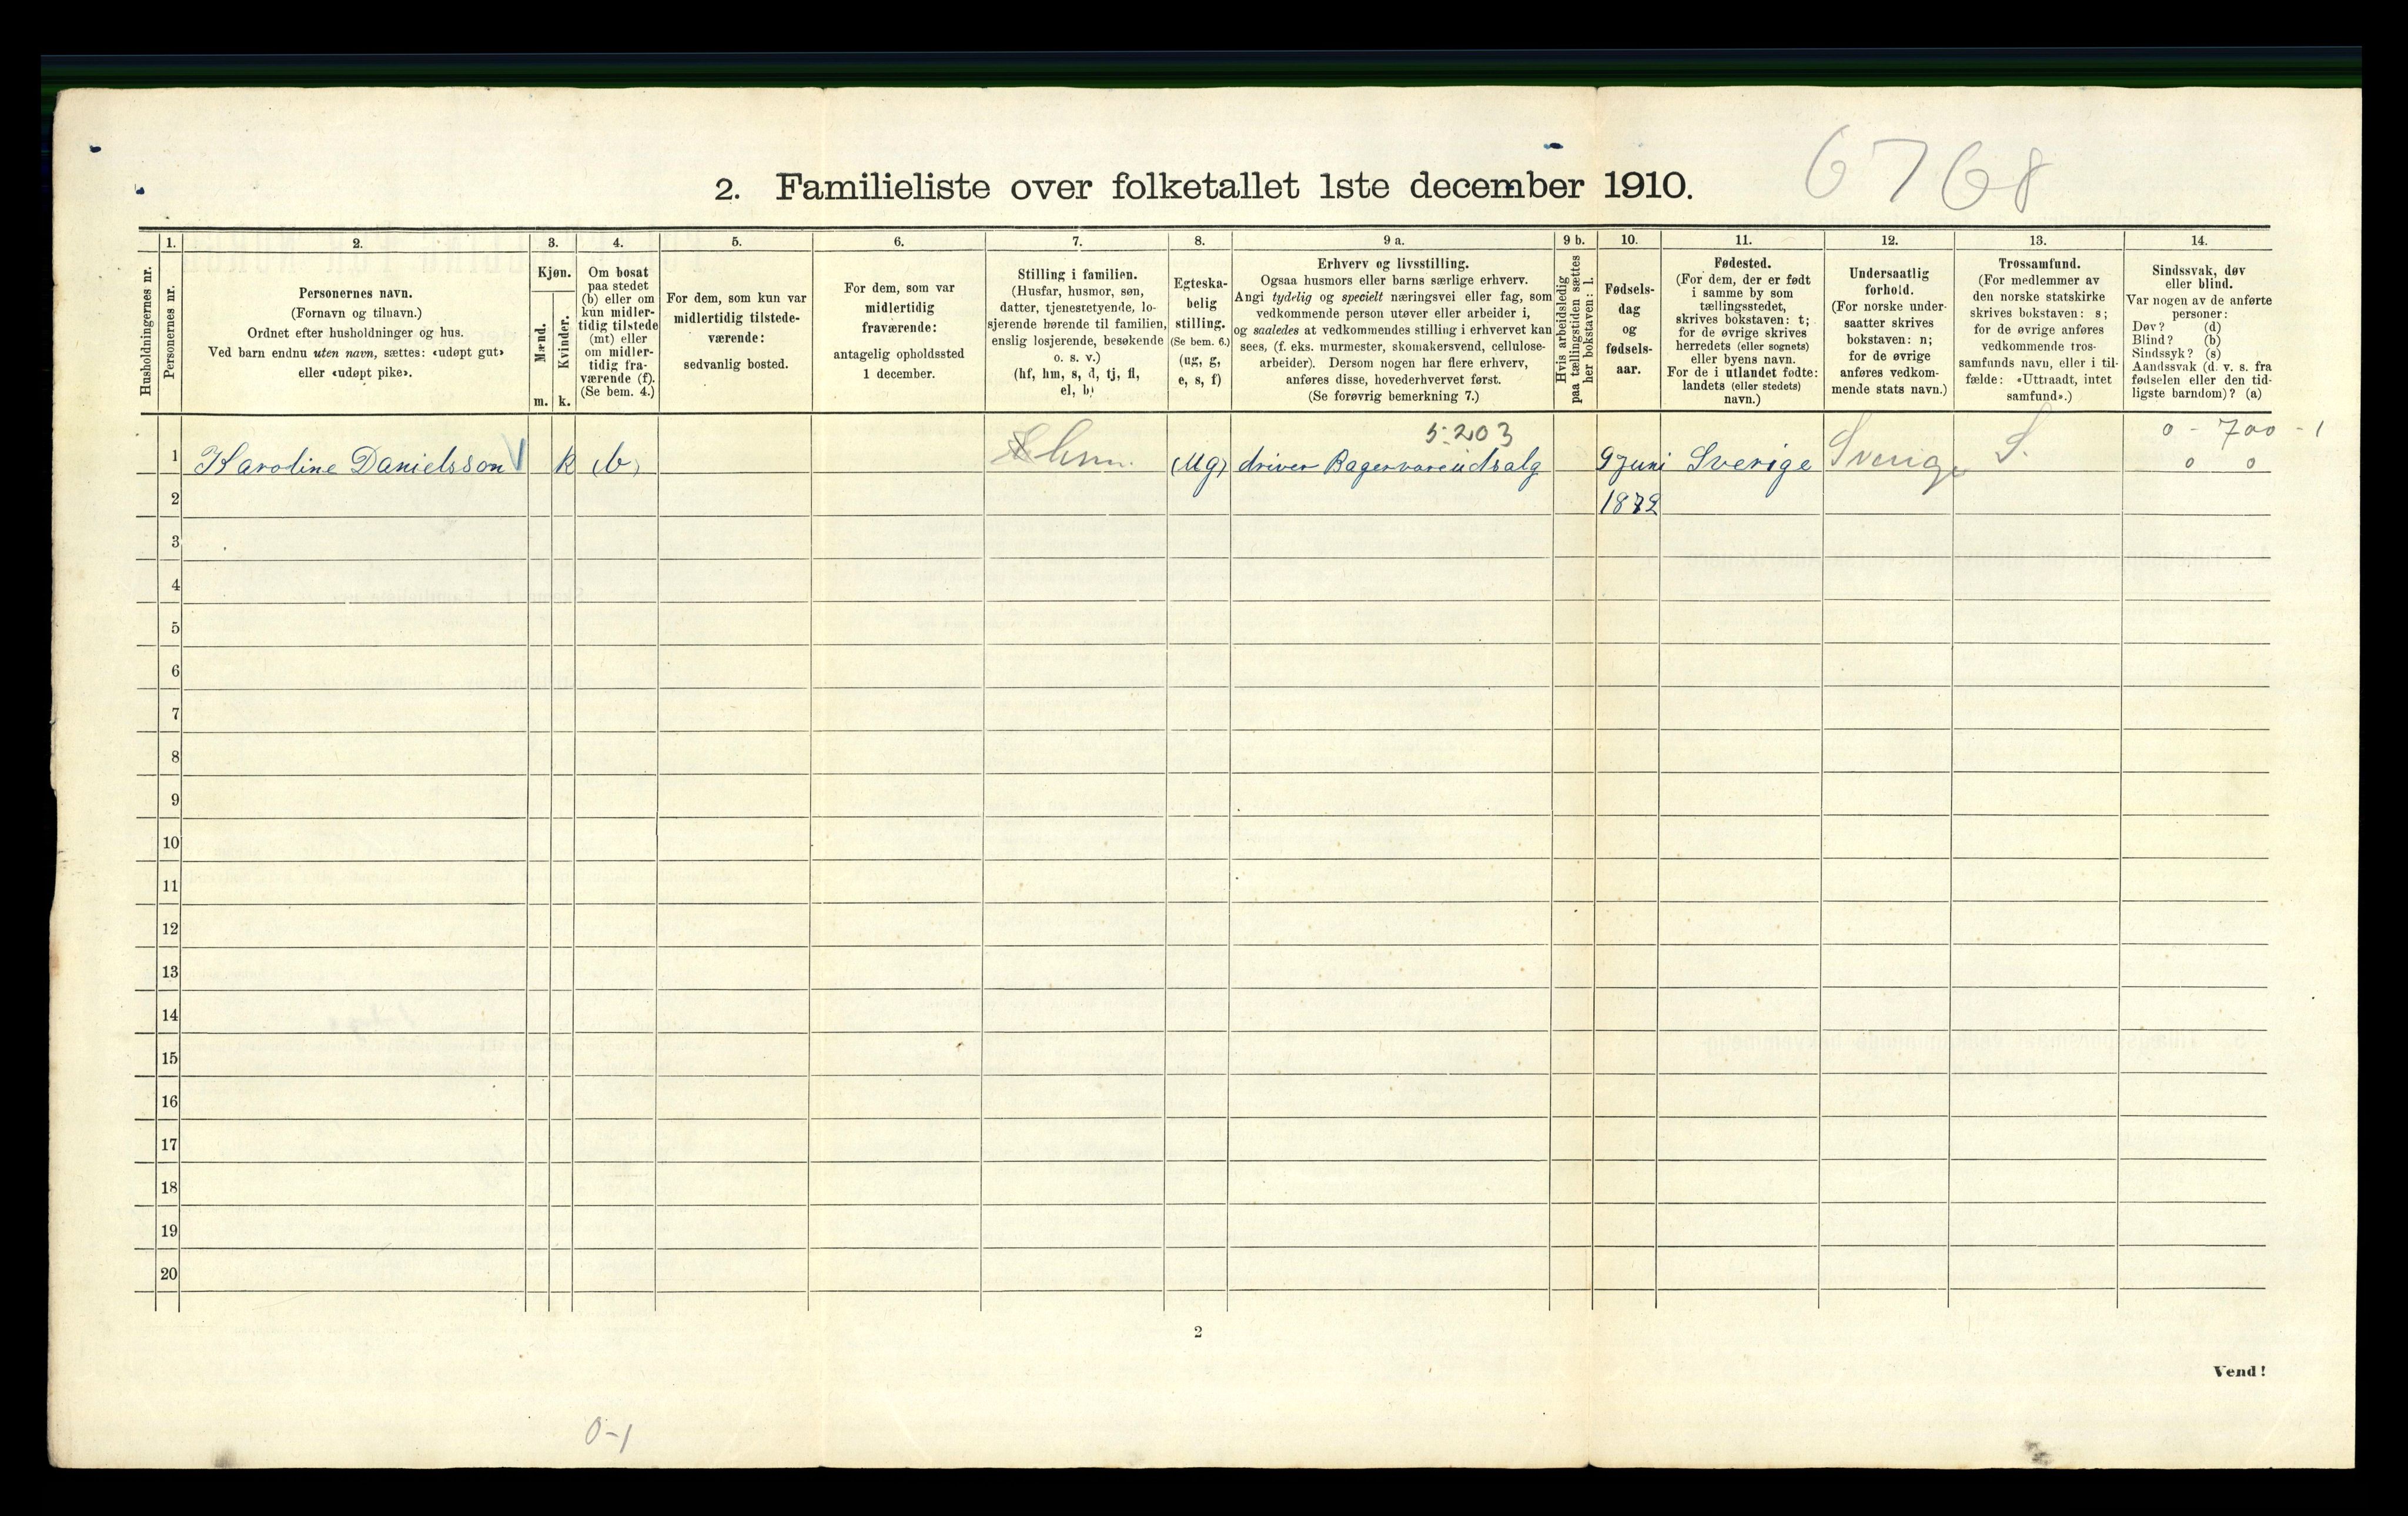 6768
2. Familieliste over folketallet 1ste december 1910.
Husholdningernes nr.
1.
Personernes nr.
2.
Personernes navn.
(Fornavn og tilnavn.)
Ordnet efter husholdninger og hus.
Ved barn endnu uten navn, sættes: «udøpt gut»
eller «udøpt pike».
3.
Kjøn.
Mænd.
m.
Kvinder.
k.
4.
Om bosat
paa stedet
(b) eller om
kun midler-
tidig tilstede
(mt) eller
om midler-
tidig fra-
værende (f).
(Se bem. 4.)
5.
For dem, som kun var
midlertidig tilstede-
værende:
sedvanlig bosted.
6.
For dem, som var
midlertidig
fraværende:
antagelig opholdssted
1 december.
7.
Stilling i familien.
(Husfar, husmor, søn,
datter, tjenestetyende, lo-
sjerende hørende til familien,
enslig losjerende, besøkende
o. s. v.)
(hf, hm, s, d, tj, fl,
el, b)
8.
Egteska-
belig
stilling.
(Se bem. 6.)
(ug, g,
e, s, f)
9 a.
Erhverv og livsstilling.
Ogsaa husmors eller barns særlige erhverv.
Angi tydelig og specielt næringsvei eller fag, som
vedkommende person utøver eller arbeider i,
og saaledes at vedkommendes stilling i erhvervet kan
sees, (f. eks. murmester, skomakersvend, cellulose-
arbeider). Dersom nogen har flere erhverv,
anføres disse, hovederhvervet først.
(Se forøvrig bemerkning 7.)
9 b.
Hvis arbeidsledig
paa tællingstiden sættes
her bokstaven: l.
10.
Fødsels-
dag
og
fødsels-
aar.
11.
Fødested.
(For dem, der er født
i samme by som
tællingsstedet,
skrives bokstaven: t;
for de øvrige skrives
herredets (eller sognets)
eller byens navn.
For de i utlandet fødte:
landets (eller stedets)
navn.)
12.
Undersaatlig
forhold.
(For norske under-
saatter skrives
bokstaven: n;
for de øvrige
anføres vedkom-
mende stats navn.)
13.
Trossamfund.
(For medlemmer av
den norske statskirke
skrives bokstaven: s;
for de øvrige anføres
vedkommende tros-
samfunds navn, eller i til-
fælde: «Uttraadt, intet
samfund».)
14.
Sindssvak, døv
eller blind.
Var nogen av de anførte
personer:
Døv? (d)
Blind? (b)
Sindssyk? (s)
Aandssvak (d. v. s. fra
fødselen eller den tid-
ligste barndom)? (a)
5.203
0 - 700 - 1
1 Karoline Danielsson k (b) hm. (Ug) driver Bagervareudsalg 9 Juni Sverige Sverige S. 0 0
2 1872
3
4
5
6
7
8
9
10
11
12
13
14
15
16
17
18
19
20
2
Vend!
0-1